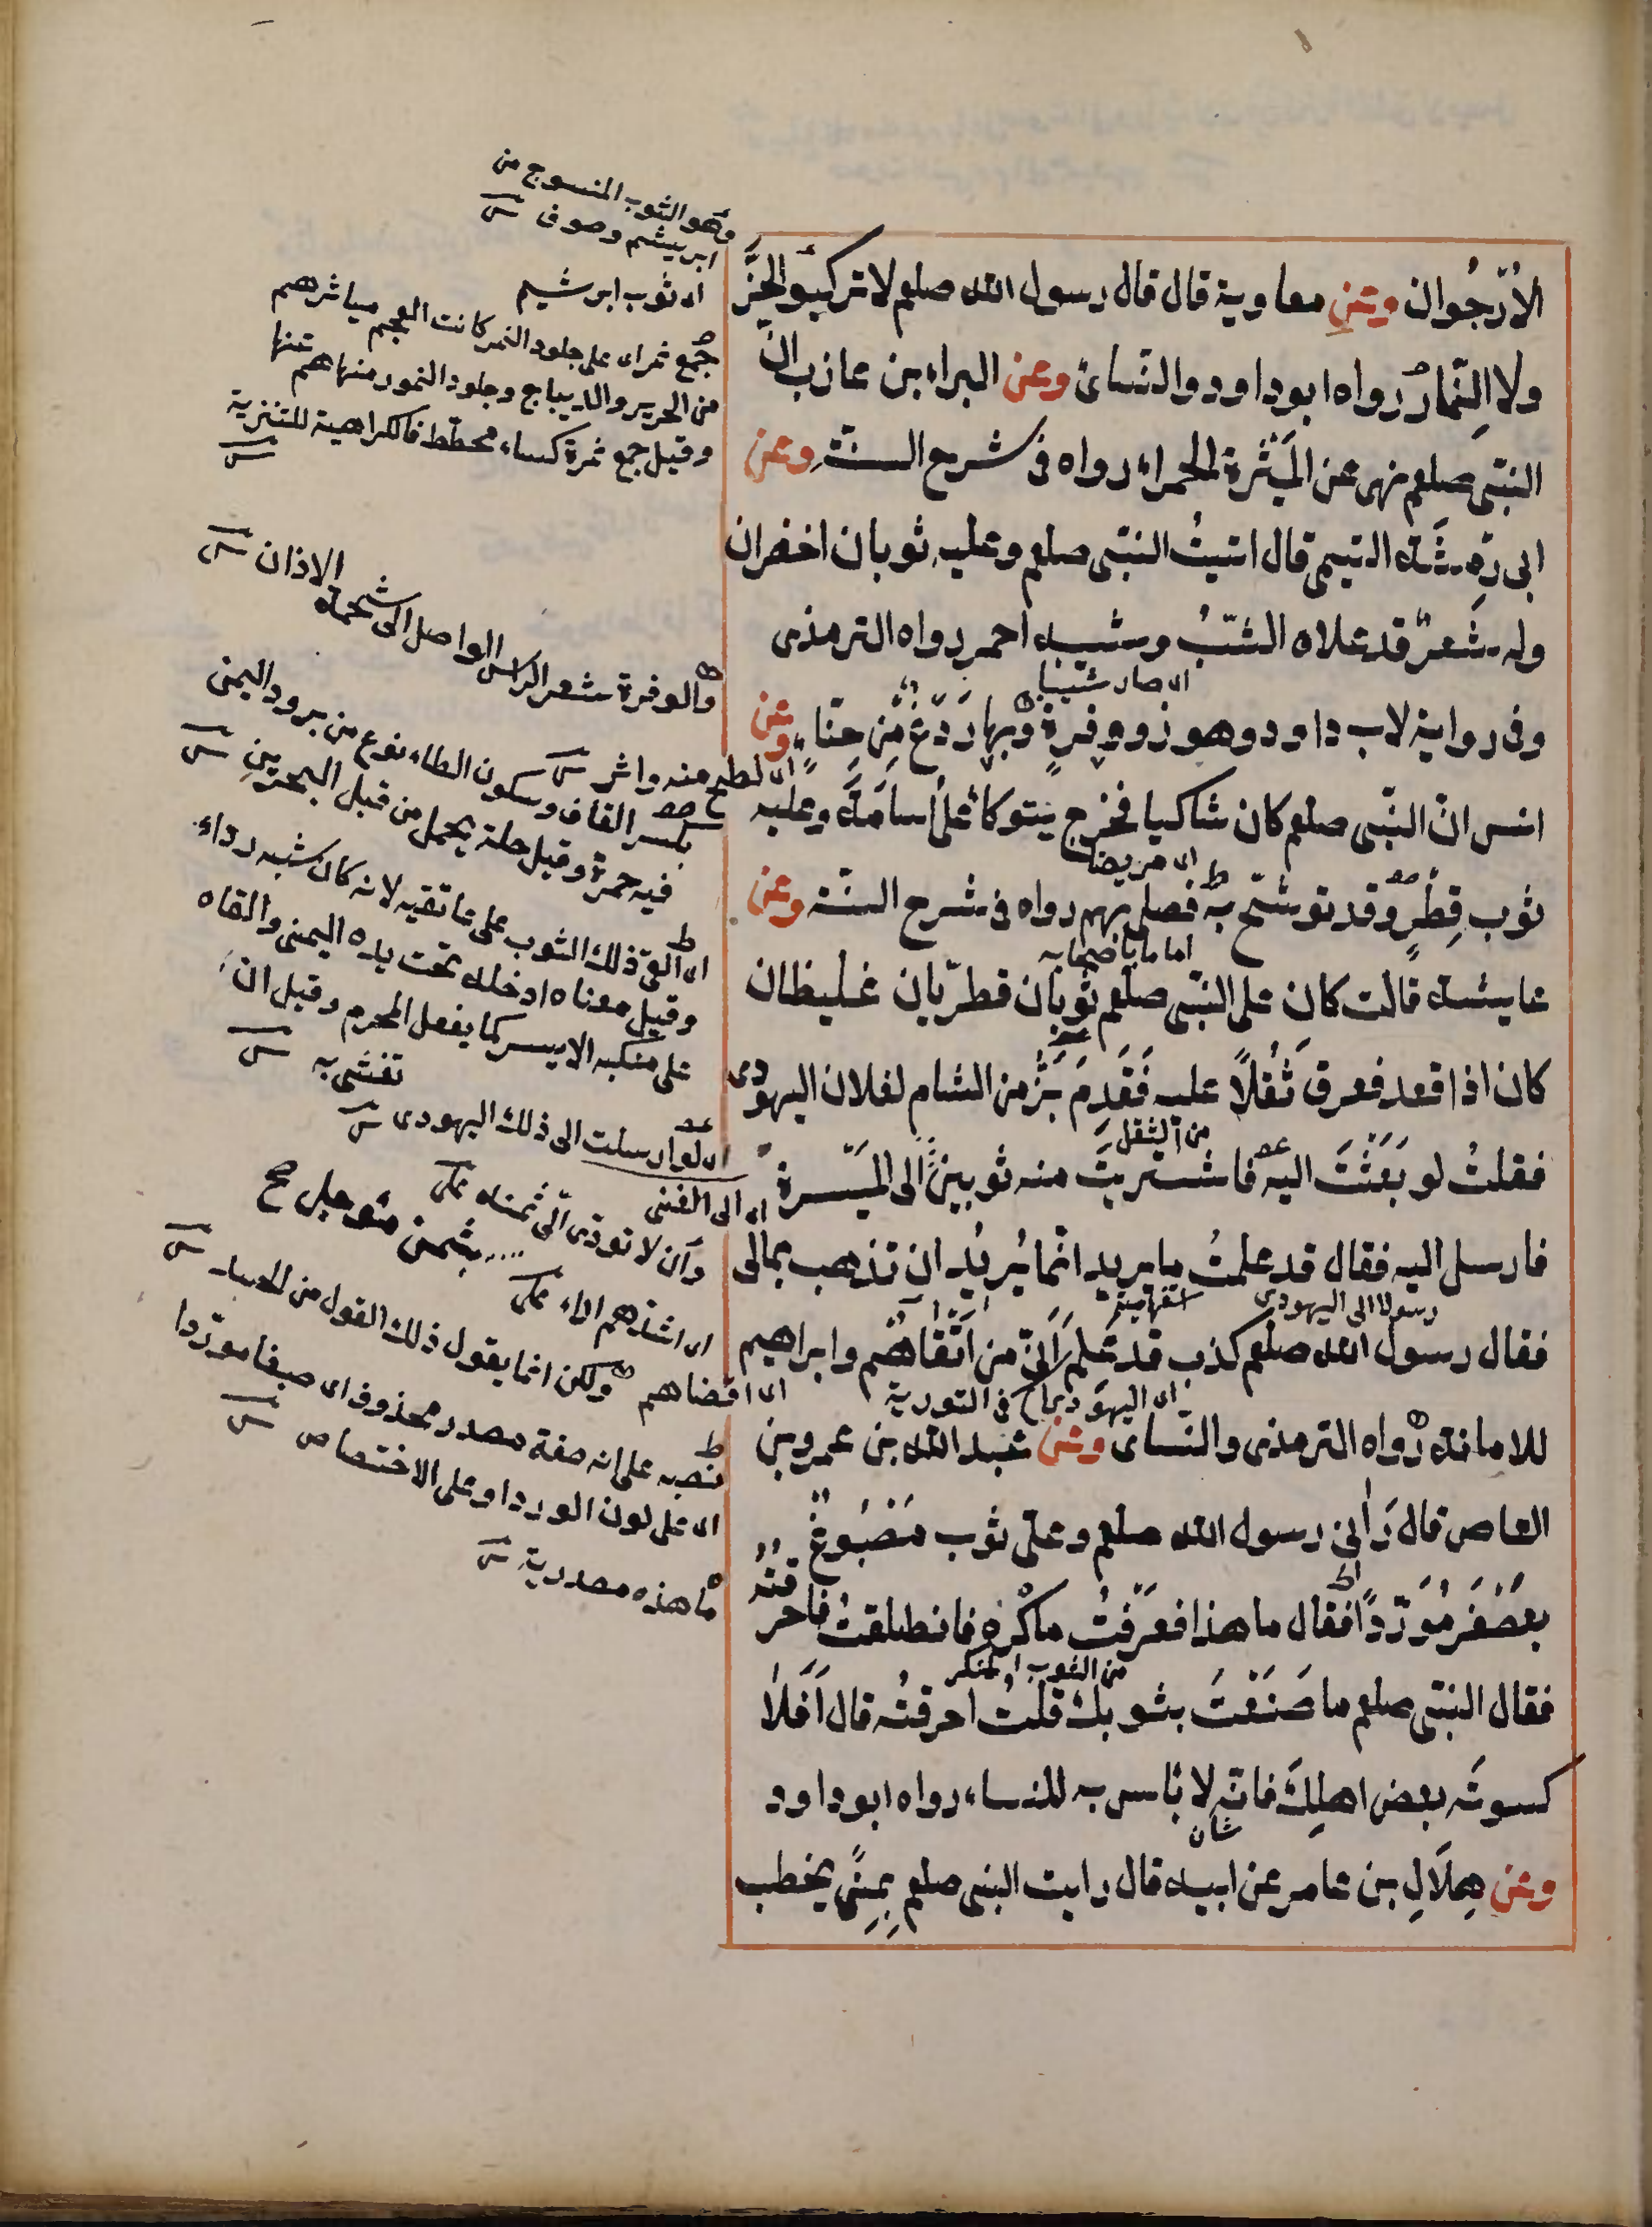 الاُرْجُوان وعن معاوية قال قال رسول الله صلعم لا تركبوا الخزّ
ولا النِّمار رواه ابو داود والنسائ وعن البراء بن عازب انّ
النبّى صلعم نهى عن المَيْثَرة الحمراء رواه فى شرح السنّة وعن
ابى رِمْثَة التيمى قال اتيتُ النبّى صلعم وعليه ثوبان اخضران
وله شَعرٌ قد علاه الشيبُ وشيبه احمر رواه الترمذى
اى صار شيبا
وفى رواية لابى داود وهو ذو وفرةٍ وبها رَدْعٌ مِّن حِنّاء وعن
انس انّ النبّى صلعم كان شاكيا فخرج يتوكا على اسامَة وعليه
اى مريضا
ثوب قِطْرٍ وقد توشّح به فصلى بهم رواه فى شرح السنّة وعن
اماما باصحابه
عايشة قالت كان على النبّى صلعم ثوبان قطريّان غليظان
كان اذا قعد فعرق ثَقُلاً عليه فَقَدِمَ بَزٌّ من الشام لفلان اليهودى
من الثقل
فقلتُ لو بَعَثْتَ اليه فاشتريتَ منه ثوبين الى المَيْسرة
فارسل اليه فقال قد علمتُ ما يريد انّما يُريدُ ان تذهب بمالى
رسولا الى اليهودى استفهامية
فقال رسول الله صلعم كذب قد عَلم اَنّى من اَتْقَاهُم وابراهيم
اى اليهودى فى التورية
للامانة رواه الترمذى والنّساى وعن عبد الله بن عمرو بن
العاص قال رَاٰنى رسول الله صلعم وعلىّ ثوب مَصْبُوغٌ
بعُصْفَر مُوَرّدًا فقال ما هذا فعَرَفْتُ ما كْرِه فانطلقتُ فاحرقتُه
من الثوب المنكر
فقال النبّى صلعم ما صَنَعْتَ بثوبك قلتُ احرقتُه قال اَفَلاٰ
كسوتَه بعضَ اهلِكَ فانّه لا باس به للنساء رواه ابو داود
شان
وعن هِلَالِ بن عامر عن ابيه قال رايت النبى صلعم بِمِنًى يخطب
وهو الثوب المنسوج من
ابريشم وصوف
اى ثوب ابرشيم
جمع نمر اى على جلود النمر كانت العجم مياثرهم
من الحرير والديباج وجلود النمور منهاهم عنها
وقيل جمع نمرة كساء مخطط فالكراهية للتنزيه
والوفرة شعر الراس الواصل الى شحمة الاذان
اى لطيح منه واثر
بكسر القاف وسكون الطاء نوع من برود اليمن
فيه حمرة وقيل حلة يحمل من قبل البحرين
اى القى ذلك الثوب على عاتقيه لانه كان شبه رداء
وقيل معناه ادخله تحت يده اليمنى والقاه
على منكبه الايسر كما يفعل المحرم وقيل ان
تغشى به
اى لو ارسلت الى ذلك اليهودى
اى الى الغنى
وان لا تودى الى ثمنه
بثمن مؤجل
اى اشدهم اداء
اى اقضاهم ولكن انما يقول ذلك القول من الحسد
نصبه على انه صفة مصدر محذوف اى صبغا موردا
اى على لون الورد او على الاختصاص
ما هذه مصدرية